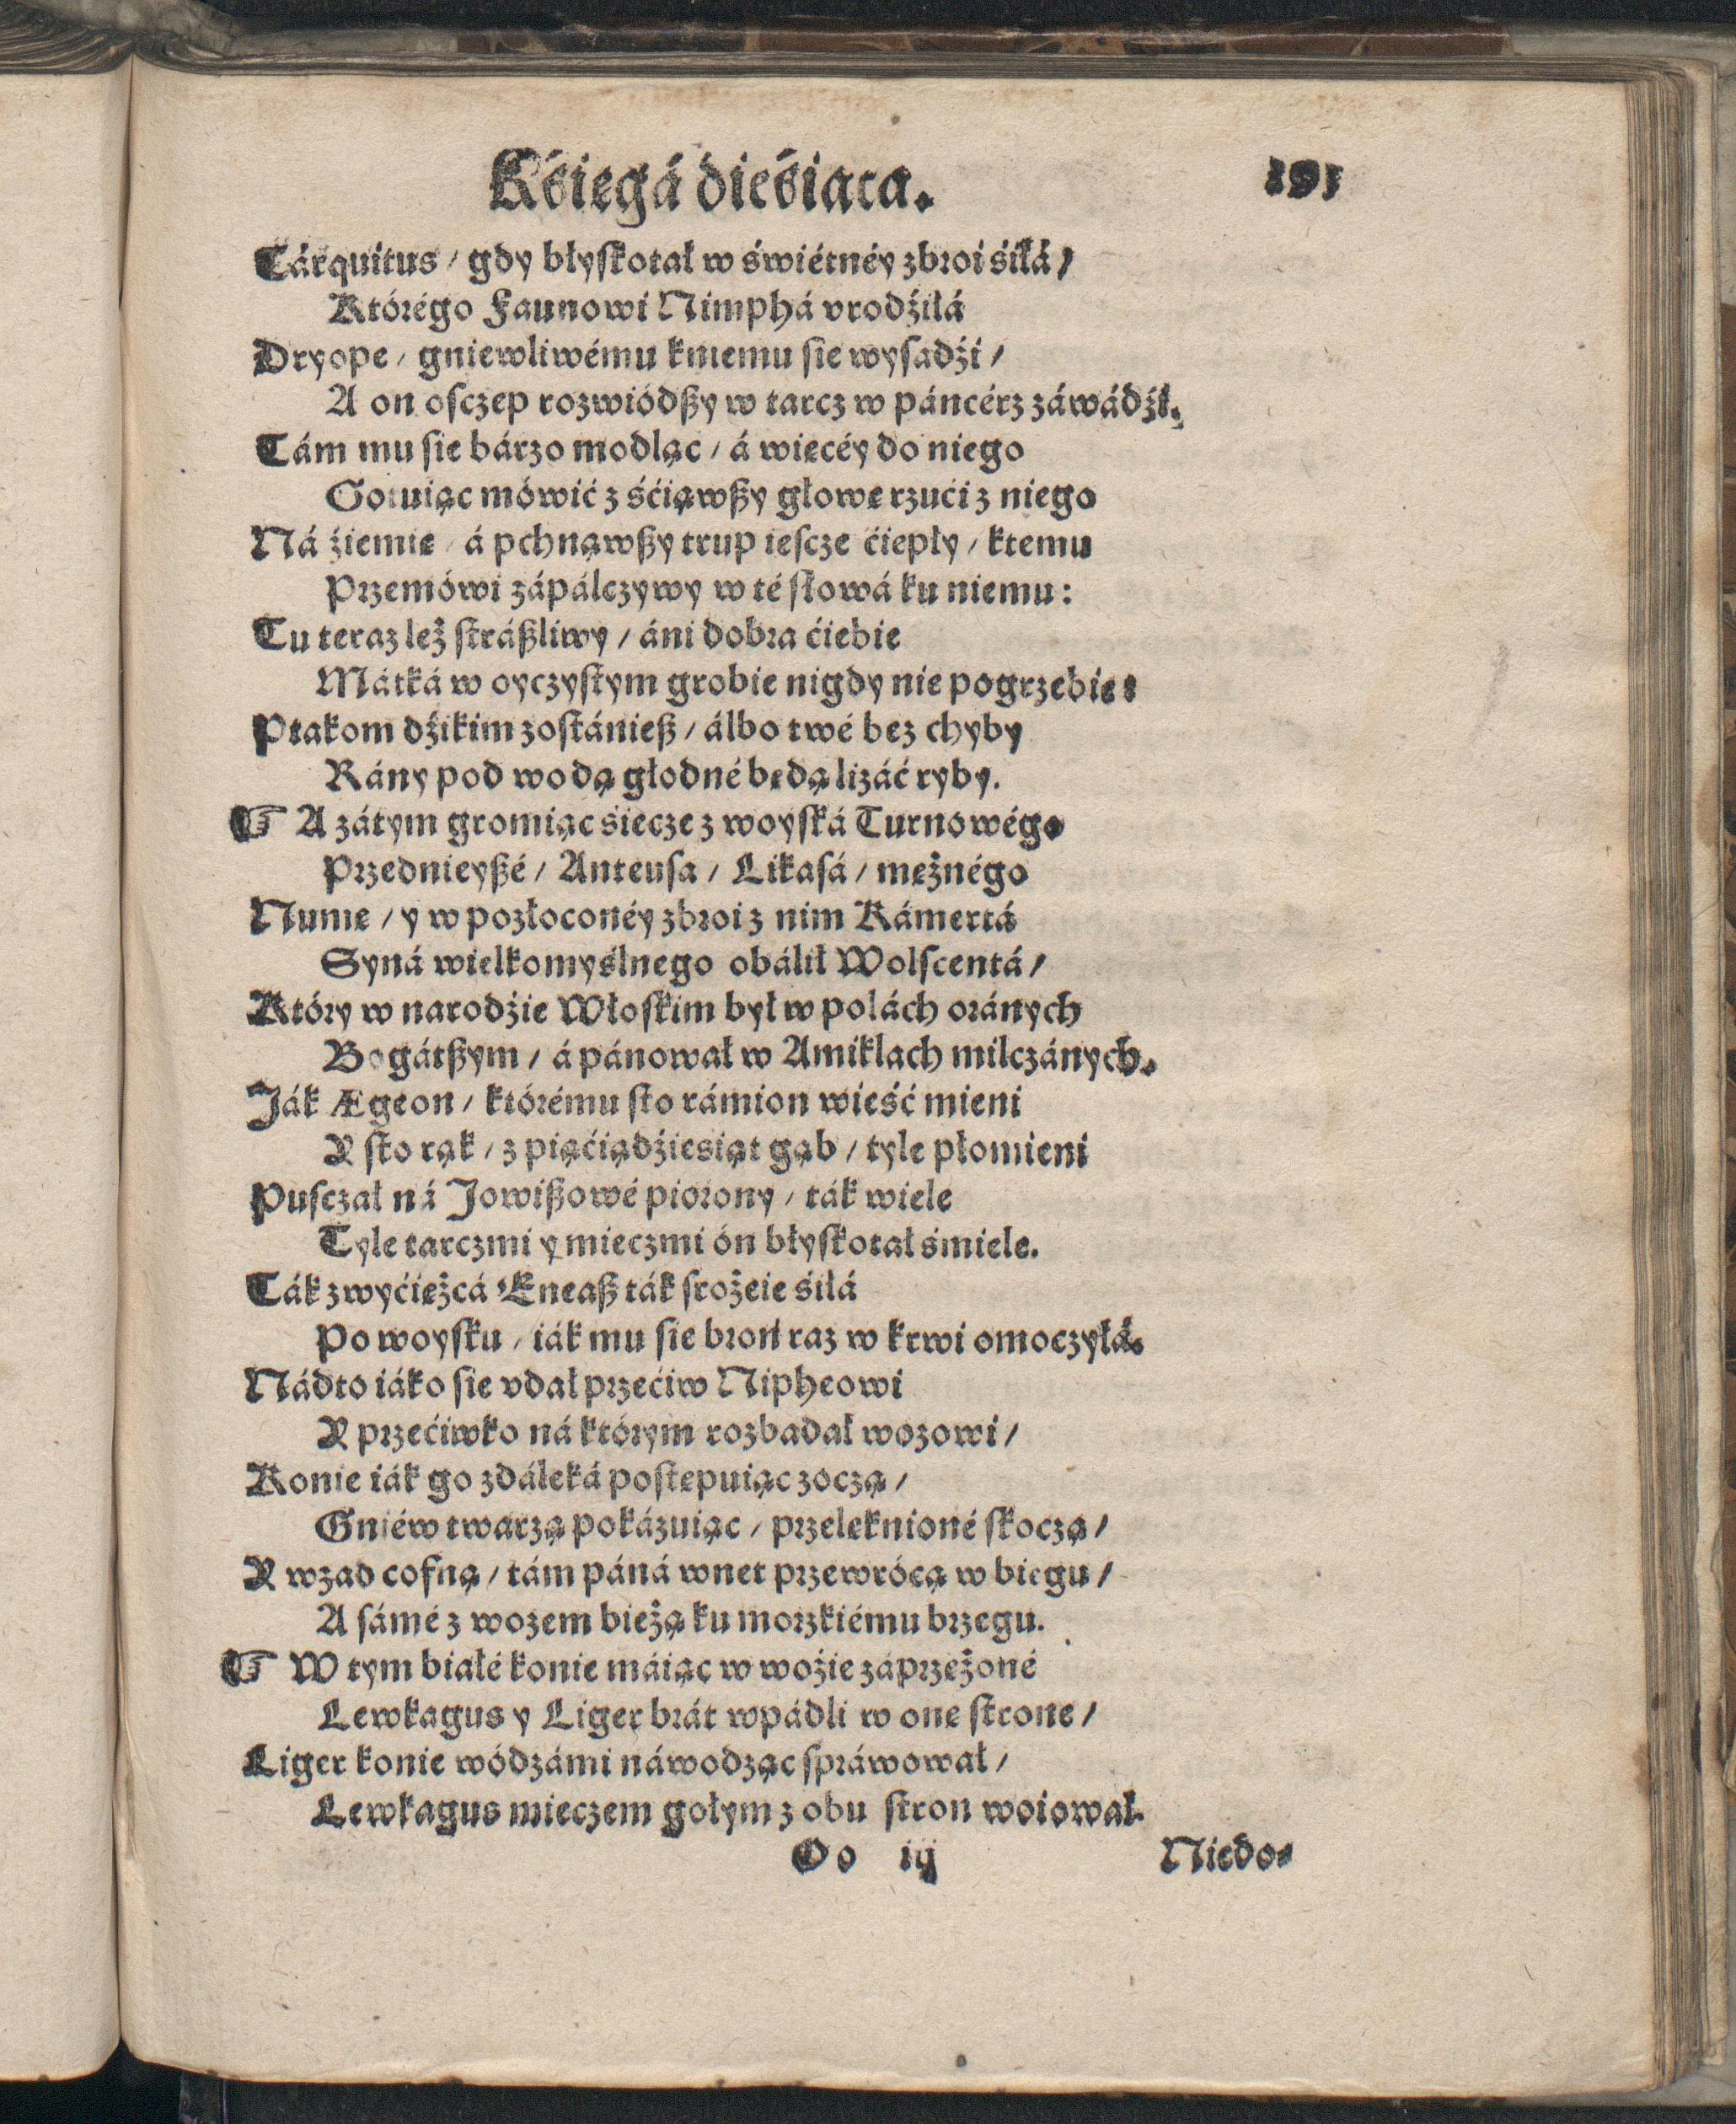 Kśięgá dieśiąta. 191
Tárquitus / gdy błyſkotał w świétnéy zbroi śiłá /
Którégo Faunowi Nimphá vrodźiłá
Dryope / gniewliwému kniemu ſie wyſadźi /
A on oſczep rozwiódßy w tarcz w páncérz záwádźi.
Tám mu ſie bárzo modląc / á więcéy do niego
Gotuiąc mówić z śćiąwßy głowę rzući z niego
Ná źiemię / á pchnąwßy trup ieſcze ćiepły / ktemu
Przemówi zápálczywy w té ſłowá ku niemu:
Tu teraz leż ſtráßliwy / áni dobra ćiebie
Mátká w oyczyſtym grobie nigdy nie pogrzebie:
Ptakom dźikim zoſtánieß / álbo twé bez chyby
Rány pod wodą głodné będą lizáć ryby.
☞ A zátym gromiąc śiecze z woyſká Turnowégo
Przednieyßé / Anteuſa / Likaſá / mężnégo
Numę / y w pozłoconéy zbroi z nim Kámertá
Syná wielkomyślnego obálił Wolſcentá /
Który w narodźie Włoſkim był w polách oránych
Bogátßym / á pánował w Amiklach milczánych.
Ják Ægeon / którému ſto rámion wieść mieni
Y ſto rąk / z piąćiądźieśiąt gąb / tyle płomieni
Puſczał ná Jowißowé piorony / ták wiele
Tyle tarczmi y mieczmi ón błyſkotał śmiele.
Ták zwyćiężcá Eneaß ták ſrożeie śiłá
Po woyſku / iák mu ſie broń raz w krwi omoczyłá.
Nádto iáko ſie vdał przećiw Nipheowi
Y przećiwko ná którym rozbadał wozowi /
Konie iák go zdáleká poſtępuiąc zoczą /
Gniéw twarzą pokázuiąc / przelęknioné ſkoczą /
Y wzad cofną / tám páná wnet przewrócą w biegu /
A ſámé z wozem bieżą ku morzkiému brzegu.
☞ W tym białé konie máiąc w woźie záprzężoné
Lewkagus y Liger brát wpádli w onę ſtronę /
Liger konie wódzámi náwodząc ſpráwował /
Lewkagus mieczem gołym z obu ſtron woiował.
Oo iij Niedo-